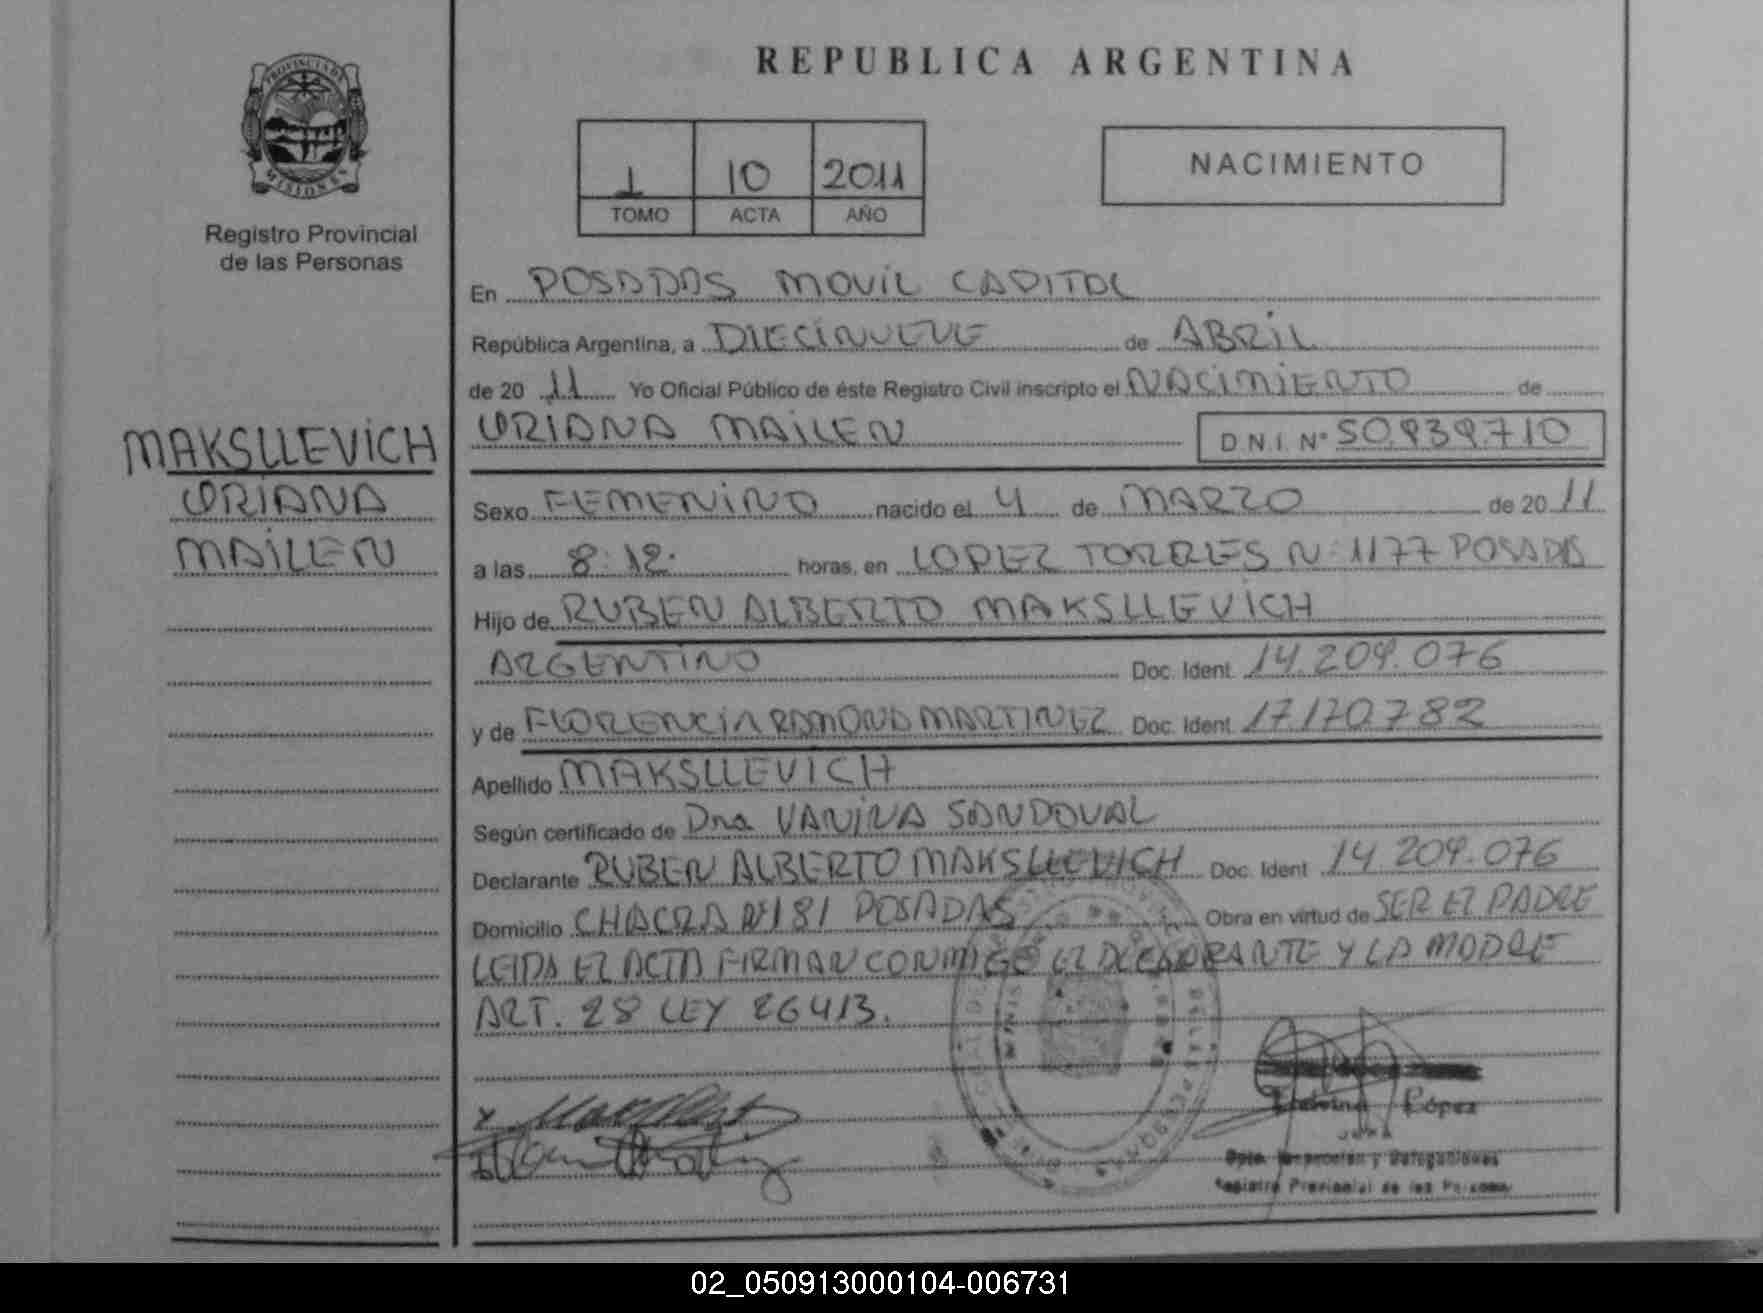 REPUBLICA ARGENTINA
PROVINCIA DE
MISIONES
Registro Provincial
de las Personas
1 10 2011
TOMO ACTA AÑO
NACIMIENTO
En POSADAS MOVIL CAPITAL
República Argentina, a DIECINUEVE de ABRIL
de 20 11 Yo Oficial Público de éste Registro Civil inscripto el NACIMIENTO de
ORIANA MAILEN D.N.I. N° 50.939.710
MAKSLLEVICH
ORIANA
MAILEN
Sexo FEMENINO nacido el 4 de MARZO de 20 11
a las 8:12. horas, en LOPEZ TORRES N: 1177 POSADAS
Hijo de RUBEN ALBERTO MAKSLLEVICH
ARGENTINO Doc. Ident. 14.209.076
y de FLORENCIA RAMONA MARTINEZ Doc. Ident. 17.170.782
Apellido MAKSLLEVICH
Según certificado de Dra VANINA SANDOVAL
Declarante RUBEN ALBERTO MAKSLLEVICH Doc. Ident 14.209.076
Domicilio CHACRA Nº181 POSADAS Obra en virtud de SER EL PADRE
LEIDA EL ACTA FIRMAN CONMIGO EL DECLARANTE Y LA MADRE
ART. 28 LEY 26413.
López
JEFA
Dpto. Inspección y Delegaciones
Registro Provincial de las Personas
02_050913000104-006731